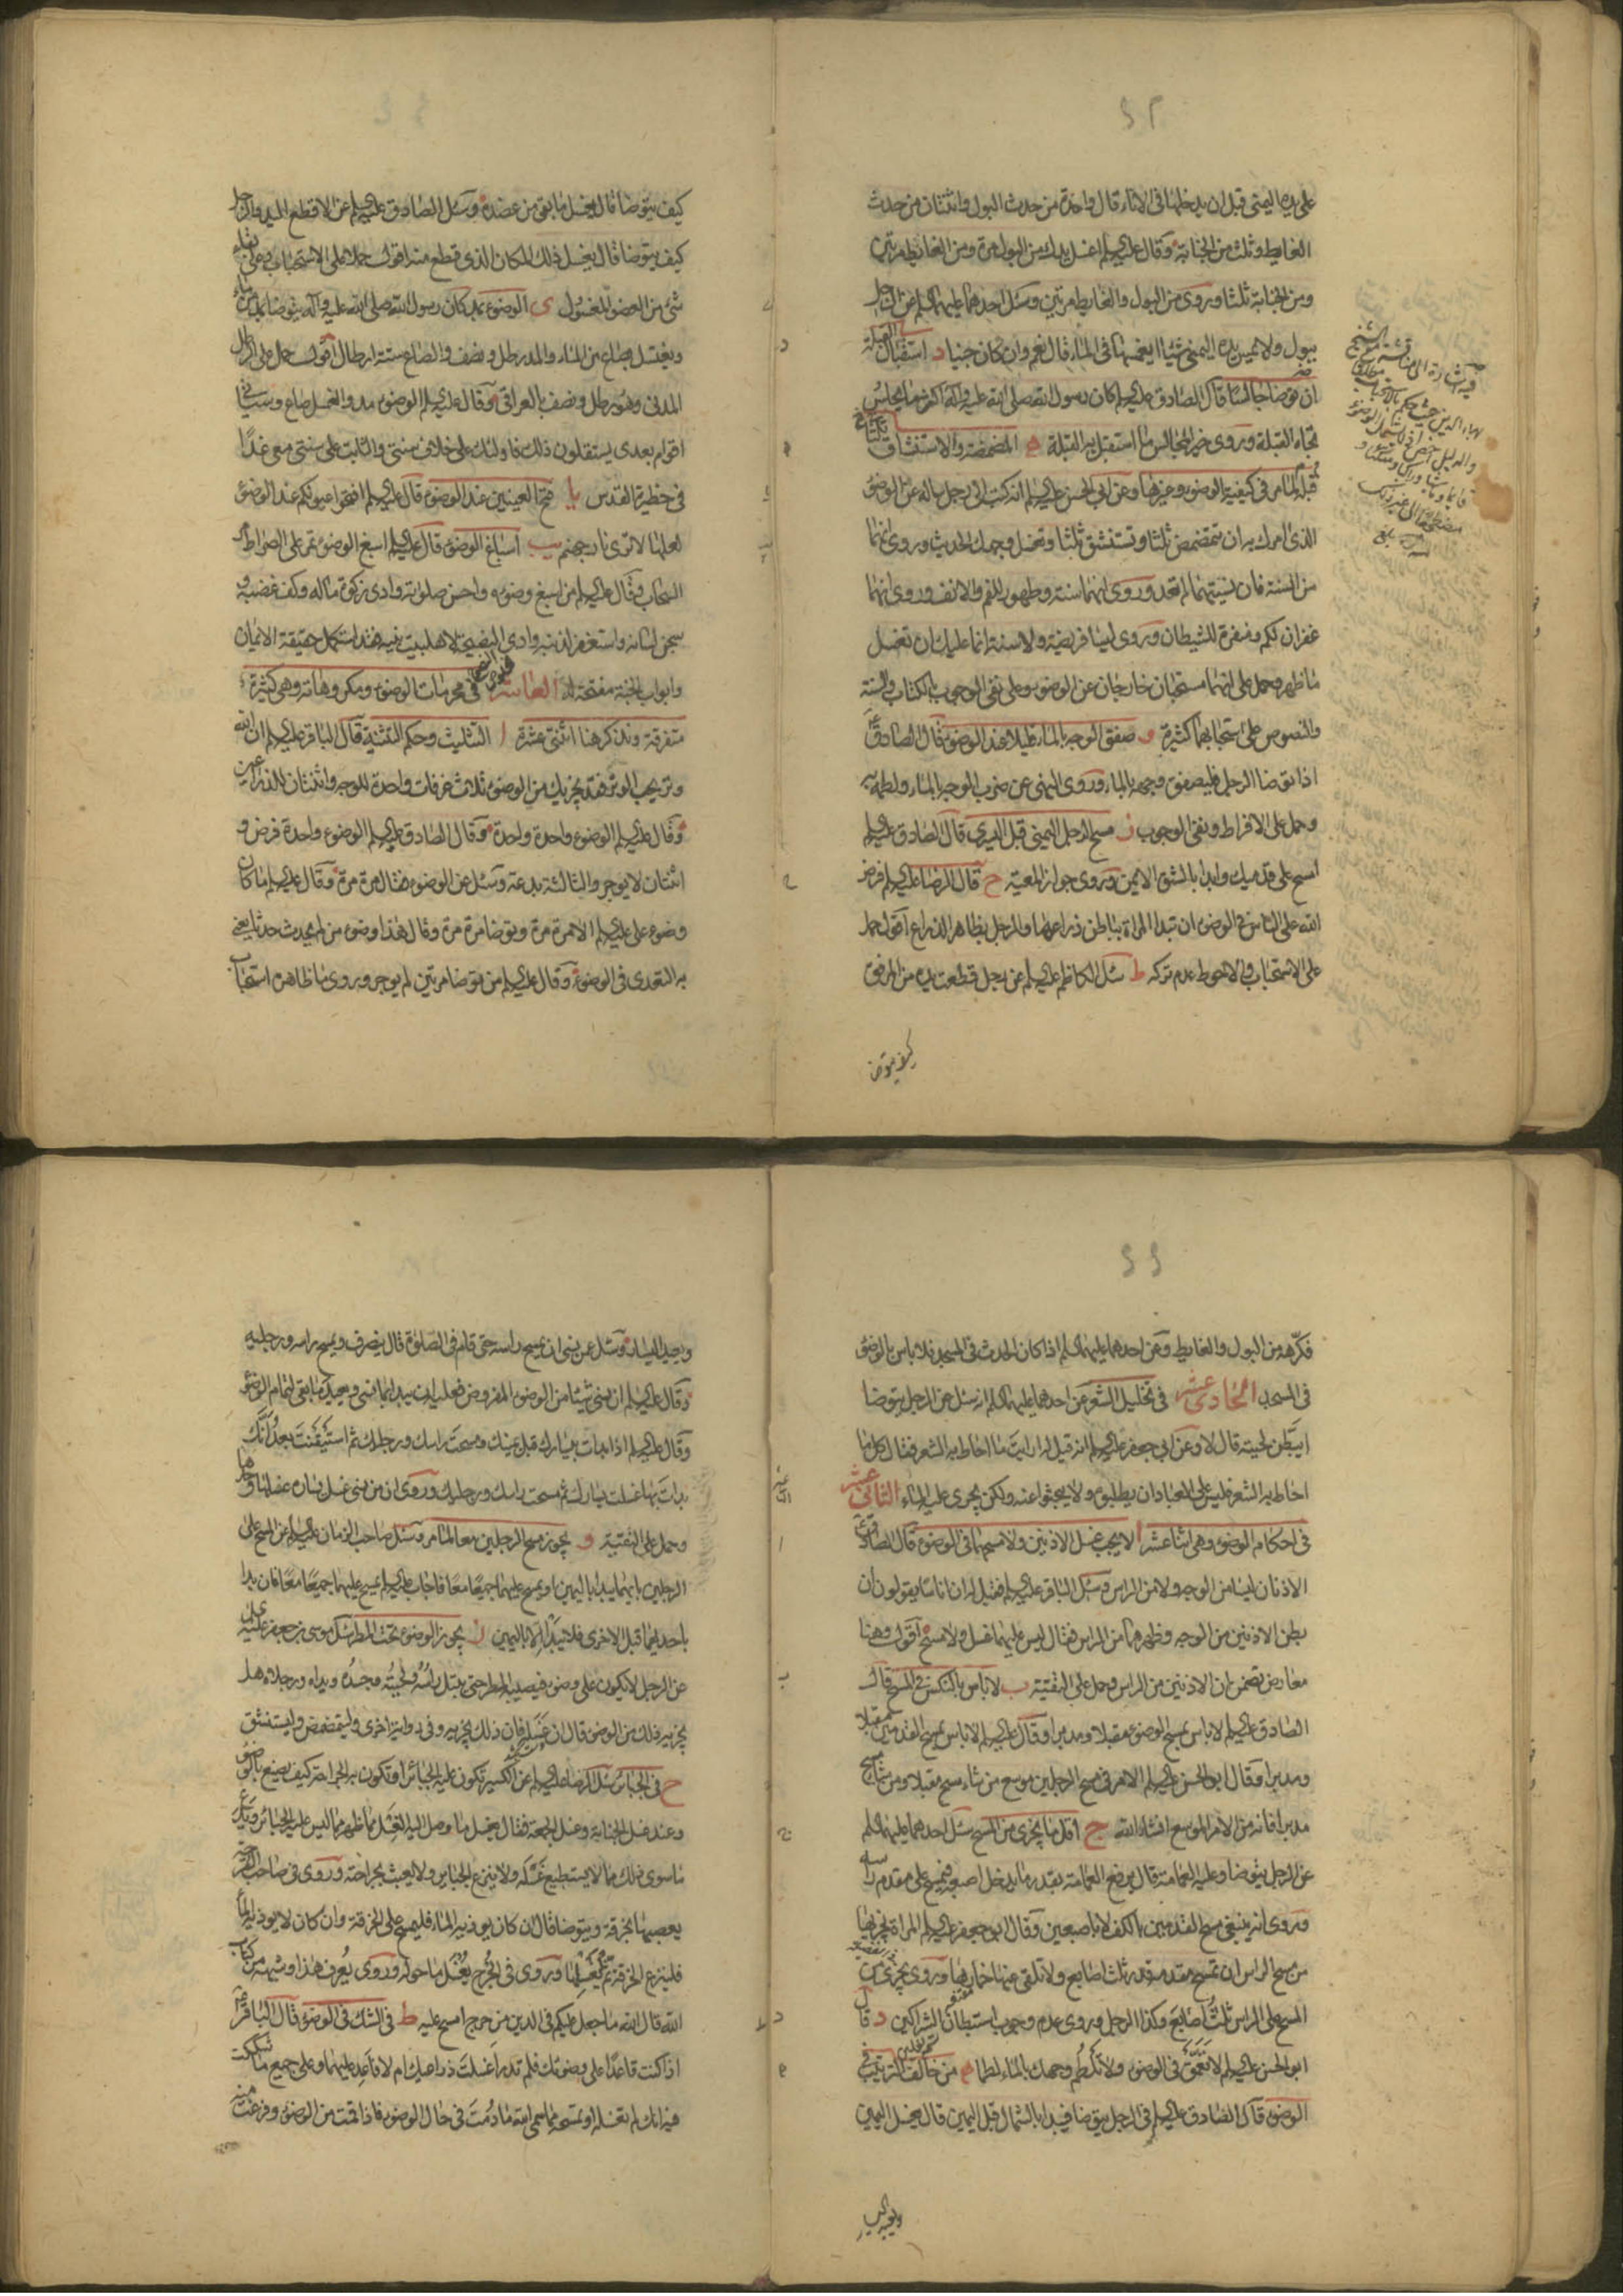 على يده اليمنى قبل ان يدخلها في الاناء قال واحدة من حدث البول واثنتان من حدث
الغايط وثلث من الجنابة وقال عليه السلم اغسل يدك من البول مرة ومن الغائط مرتين
ومن الجنابة ثلثا وروى من البول والغايط مرتين وسئل احدهما عليهما السلم عن الرجل
يبول ولا يمس يده اليمنى شيئا ايغمسها في الماء قال نعم وان كان جنبا د استقبال القبلة
ان توضا جالسا قال الصادق عليه السلم كان رسول الله صلى الله عليه وآله اكثر ما يجلس
تجاه القبلة وروى خير المجالس ما استقبل به القبلة ه المضمضة والاستنشاق ثلثا ثلثا
قبله لما مر في كيفية الوضوء وغيرها وعن ابي الحسن عليه السلم انه كتب الى رجل ساله عن الوضوء
الذى امرك به ان تتمضمض ثلثا وتستنشق ثلثا وتغسل وجهك الحديث وروى انهما
من السنة فان نسيتهما لم تعد وروى انهما سنة وطهور للفم والانف وروى انهما
غفران لكم ومنفرة للشيطان وروى ليسا فريضة ولا سنة انما عليك ان تغسل
ما ظهر وحمل على انهما مستحبان خارجان عن الوضوء وعلى نفى الوجوب بالكتاب والسنة
والنصوص على استحبابهما كثيرة و صفق الوجه بالماء قليلا عند الوضوء قال الصادق ع
اذا توضا الرجل فليصفق وجهه بالماء وروى النهى عن ضرب الوجه بالماء ولطمه به
وحمل على الافراط ونفى الوجوب ز مسح الرجل اليمنى قبل اليسرى قال الصادق عليه السلم
امسح على قدميك وابدا بالشق الايمن وروى جواز المعية ح قال الرضا عليه السلم فرض
الله على الناس في الوضوء ان تبدا المراة بباطن ذراعها والرجل بظاهر الذراع اقول حمل
على الاستحباب والاحوط عدم تركه ط سئل الكاظم عليه السلم عن رجل قطعت يده من المرفق
كيف يتوضا
كيف يتوضا قال يغسل ما بقى من عضده وسئل الصادق عليه السلم عن الاقطع اليد والرجل
كيف يتوضا قال يغسل ذلك المكان الذى قطع منه اقول حمل على الاستحباب وعلى بقاء
شئ من العضو المغسول ى الوضوء بمد كان رسول الله صلى الله عليه وآله يتوضا بمد من ماء
ويغتسل بصاع من الماء والمد رطل ونصف والصاع ستة ارطال اقول حمل على الرطل
المدنى وهو رطل ونصف بالعراقى وقال عليه السلم الوضوء مد والغسل صاع وسياتى
اقوام بعدى يستقلون ذلك فاولئك على خلاف سنتى والثابت على سنتى معى غدا
في حظيرة القدس يا فتح العينين عند الوضوء قال عليه السلم افتحوا عيونكم عند الوضوء
لعلها لا ترى نار جهنم يب اسباغ الوضوء قال عليه السلم اسبغ الوضوء تمر على الصراط مر
السحاب وقال عليه السلم من اسبغ وضوءه واحسن صلوته وادى زكوة ماله وكف غضبه و
سجن لسانه واستغفر لذنبه وادى النصيحة لاهل بيت نبيه فقد استكمل حقيقة الايمان
وابواب الجنة مفتحة له العاشر في محرمات الوضوء ومكروهاته وهى كثيرة
متفرقة ونذكر هنا اثنتى عشرة ا التثليث وحكم التثنية قال الباقر عليه السلم ان الله
وتر يحب الوتر فقد يجزيك من الوضوء ثلاث غرفات واحدة للوجه واثنتان للذراعين
وقال عليه السلم الوضوء واحدة واحدة وقال الصادق عليه السلم الوضوء واحدة فرض و
اثنتان لا يوجر والثالثة بدعة وسئل عن الوضوء فقال مرة مرة وقال عليه السلم ما كان
وضوء على عليه السلم الا مرة مرة وتوضا مرة مرة وقال هذا وضوء من لم يحدث حدثا يعنى
به التعدى في الوضوء وقال عليه السلم من توضا مرتين لم يوجر وروى ما ظاهره استحباب
فكرهه من البول والغايط وعن احدهما عليهما السلم اذا كان الحدث في المسجد فلا باس بالوضوء
في المسجد الحادى عشر في تخليل الشعر عن احدهما عليهما السلم انه سئل عن الرجل يتوضا
ايبطن لحيته قال لا وعن ابي جعفر عليه السلم انه قيل له ارايت ما احاط به الشعر فقال كل ما
احاط به الشعر فليس على العباد ان يطلبوه ولا يبحثوا عنه ولكن يجرى عليه الماء الثانى عشر
في احكام الوضوء وهى اثنا عشر ا لا يجب غسل الاذنين ولا مسحهما في الوضوء قال الصادق ع
الاذنان ليسا من الوجه ولا من الراس وسئل الباقر عليه السلم فقيل له ان اناسا يقولون ان
بطن الاذنين من الوجه وظهرهما من الراس فقال ليس عليهما غسل ولا مسح اقول وهنا
معارض تضمن ان الاذنين من الراس وحمل على التقية ب لا باس بالنكس في المسح قال
الصادق عليه السلم لا باس بمسح الوضوء مقبلا ومدبرا وقال عليه السلم لا باس بمسح القدمين مقبلا
ومدبرا وقال ابو الحسن عليه السلم الامر في مسح الرجلين موسع من شاء مسح مقبلا ومن شاء مسح
مدبرا فانه من الامر الموسع انشاء الله ج اقل ما يجزى من المسح سئل احدهما عليهما السلم
عن الرجل يتوضا وعليه العمامة قال يرفع العمامة بقدر ما يدخل اصبعه فيمسح على مقدم راسه
وروى انه ينبغى مسح القدمين بالكف لا باصبعين وقال ابو جعفر عليه السلم المراة يجزيها
من مسح الراس ان تمسح مقدمه قدر ثلث اصابع ولا تلقى عنها خمارها وروى يجزى من
المسح على الراس ثلث اصابع وكذا الرجل وروى عدم وجوب استبطان الشراكين د قال
ابو الحسن عليه السلم لا تعمق في الوضوء ولا تلطم وجهك بالماء لطما ه من خالف الترتيب في
الوضوء قال الصادق عليه السلم في الرجل يتوضا فيبدا بالشمال قبل اليمين قال يغسل اليمين
ويعيد اليسار
ويعيد اليسار وسئل عن نسى ان يمسح راسه حتى قام في الصلوة قال ينصرف ويمسح راسه ورجليه
وقال عليه السلم ان نسى شيئا من الوضوء المفروض فعليه ان يبدا بما نسى ويعيد ما بقى لتمام الوضوء
وقال عليه السلم اذا بدات بيسارك قبل يمينك ومسحت راسك ورجليك ثم استيقنت بعد انك
بدات بها غسلت يسارك ثم مسحت راسك ورجليك وروى ان من نسى غسل يساره غسلها وحدها
وحمل على التقية و يجوز مسح الرجلين معا لما مر وسئل صاحب الزمان عليه السلم عن المسح على
الرجلين بايهما يبدا باليمين او يمسح عليهما جميعا معا فاجاب عليه السلم يمسح عليهما جميعا معا فان بدا
باحديهما قبل الاخرى فلا يبدا الا باليمين ز يجوز الوضوء تحت المطر سئل موسى بن جعفر عليه السلم
عن الرجل لا يكون على وضوء فيصيبه المطر حتى يبتل راسه ولحيته وجسده ويداه ورجلاه هل
يجزيه ذلك من الوضوء قال ان غسله فان ذلك يجزيه وفى رواية اخرى وليتمضمض وليستنشق
ح في الجبائر سئل الرضا عليه السلم عن الكسير تكون عليه الجبائر او تكون به الجراحة كيف يصنع بالوضوء
وعند غسل الجنابة وغسل الجمعة فقال يغسل ما وصل اليه الغسل مما ظهر مما ليس عليه الجبائر ويدع
ما سوى ذلك مما لا يستطيع غسله ولا ينزع الجبائر ولا يعبث بجراحته وروى في صاحب القرحة
يعصبها بخرقة ويتوضا قال ان كان يوذيه الماء فليمسح على الخرقة وان كان لا يوذيه الماء
فلينزع الخرقة ثم ليغسلها وروى في الجرح يغسل ما حوله وروى يعرف هذا وشبهه من كتاب
الله قال الله ما جعل عليكم في الدين من حرج امسح عليه ط في الشك في الوضوء قال الباقر ع
اذا كنت قاعدا على وضوئك فلم تدر اغسلت ذراعيك ام لا فاعد عليهما وعلى جميع ما شككت
فيه انك لم تغسله او تمسحه مما سمى الله ما دمت في حال الوضوء فاذا قمت من الوضوء وفرغت منه